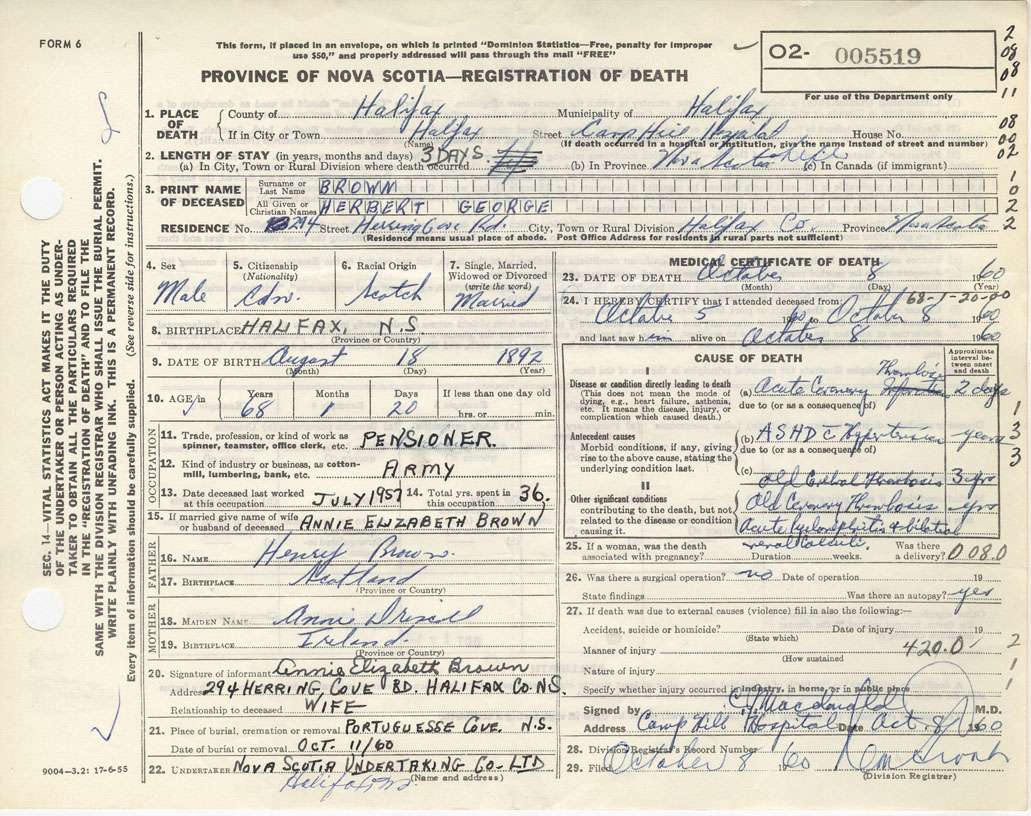 FORM 6
This form, if placed in an envelope, on which is printed "Dominion Statistics—Free, penalty for improper
use $50," and properly addressed will pass through the mail "FREE"
PROVINCE OF NOVA SCOTIA—REGISTRATION OF DEATH
O2- 005519
For use of the Department only
2
08
08
11
08
00
02
1
0
2
2
1. PLACE OF DEATH { County of Halifax Municipality of Halifax
If in City or Town Halifax Street Camp Hill Hospital House No.
(Name) (If death occurred in a hospital or institution, give the name instead of street and number)
2. LENGTH OF STAY (in years, months and days) 3 DAYS. life
(a) In City, Town or Rural Division where death occurred (b) In Province Nova Scotia (c) In Canada (if immigrant)
3. PRINT NAME OF DECEASED { Surname or Last Name BROWN
All Given or Christian Names HERBERT GEORGE
RESIDENCE No. 294 Street Herring Cove Rd. City, Town or Rural Division Halifax Co. Province Nova Scotia
(Residence means usual place of abode. Post Office Address for residents in rural parts not sufficient)
4. Sex
Male
5. Citizenship (Nationality)
Cdn.
6. Racial Origin
Scotch
7. Single, Married, Widowed or Divorced (write the word)
Married
8. BIRTHPLACE HALIFAX, N.S.
(Province or Country)
9. DATE OF BIRTH August 18 1892
(Month) (Day) (Year)
10. AGE in { Years 68 Months 1 Days 20 If less than one day old
hrs. or min.
OCCUPATION
11. Trade, profession, or kind of work as spinner, teamster, office clerk, etc. PENSIONER.
12. Kind of industry or business, as cotton-mill, lumbering, bank, etc. ARMY
13. Date deceased last worked at this occupation JULY 1957 14. Total yrs. spent in this occupation 36.
15. If married give name of wife or husband of deceased ANNIE ELIZABETH BROWN
FATHER
16. NAME Henry Brown.
17. BIRTHPLACE Scotland
(Province or Country)
MOTHER
18. MAIDEN NAME Annie
19. BIRTHPLACE Ireland
(Province or Country)
20. Signature of informant Annie Elizabeth Brown
Address 294 HERRING COVE RD. HALIFAX CO. N.S.
Relationship to deceased WIFE
21. Place of burial, cremation or removal PORTUGUESSE COVE. N.S.
Date of burial or removal OCT. 11/60
22. UNDERTAKER NOVA SCOTIA UNDERTAKING CO-LTD
Halifax, N.S. (Name and address)
MEDICAL CERTIFICATE OF DEATH
23. DATE OF DEATH October 8 1960
(Month) (Day) (Year)
68-1-20-00
24. I HEREBY CERTIFY that I attended deceased from:
October 5 1960 to October 8 1960
and last saw him alive on October 8 1960
CAUSE OF DEATH
Approximate interval between onset and death
I
Disease or condition directly leading to death
(This does not mean the mode of dying, e.g., heart failure, asthenia, etc. It means the disease, injury, or complication which caused death.)
(a) Acute Coronary Thrombosis 2 days
due to (or as a consequence of)
Antecedent causes
Morbid conditions, if any, giving rise to the above cause, stating the underlying condition last.
(b) ASHD c Hypertension years
due to (or as a consequence of)
(c)
II
Other significant conditions contributing to the death, but not related to the disease or condition causing it.
Old Cerebral Thrombosis 3 yrs
Old Coronary Thrombosis yrs
Acute Pyelonephritis & bilateral
renal calculi.
1
3
3
25. If a woman, was the death associated with pregnancy? weeks. Was there a delivery? 0080
26. Was there a surgical operation? no Date of operation 19
State findings Was there an autopsy? yes
27. If death was due to external causes (violence) fill in also the following:—
Accident, suicide or homicide? Date of injury 19
(State which)
Manner of injury 420.0
(How sustained
Nature of injury
Specify whether injury occurred in industry, in home, or in public place
2
1
1
Signed by Macdonald M.D.
Address Camp Hill Hospital Date Oct. 8 1960
28. Division Registrar's Record Number
29. Filed October 8 1960
(Division Registrar)
SEC. 14—VITAL STATISTICS ACT MAKES IT THE DUTY
OF THE UNDERTAKER OR PERSON ACTING AS UNDER-
TAKER TO OBTAIN ALL THE PARTICULARS REQUIRED
IN THE "REGISTRATION OF DEATH" AND TO FILE THE
SAME WITH THE DIVISION REGISTRAR WHO SHALL ISSUE THE BURIAL PERMIT.
WRITE PLAINLY WITH UNFADING INK. THIS IS A PERMANENT RECORD.
Every item of information should be carefully supplied. (See reverse side for instructions.)
9004-3.2: 17-6-55